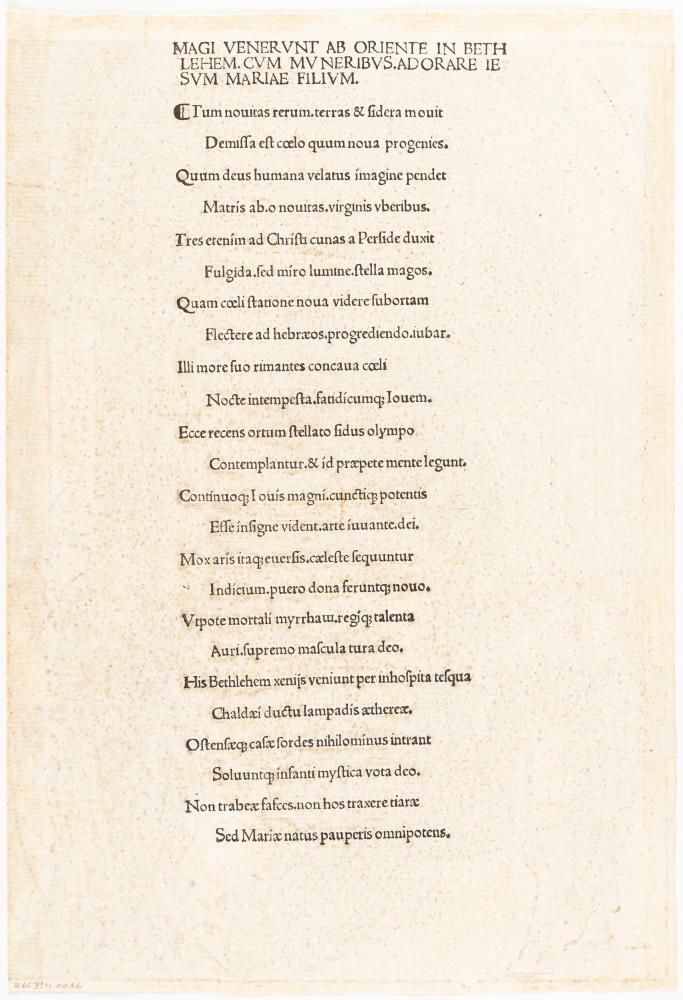 MAGI VENERVNT AB ORIENTE IN BETH
LEHEM. CVM MVNERIBVS. ADORARE IE
SVM MARIAE FILIVM.
Tum nouitas rerum. terras & ſidera mouit
Demiſſa eſt cœlo quum noua progenies.
Quum deus humana velatus imagine pendet
Matris ab. o nouitas. virginis vberibus.
Tres etenim ad Chriſti cunas a Perſide duxit
Fulgida. ſed miro lumine. ſtella magos.
Quam cœli ſtatione noua videre ſubortam
Flectere ad hebræos. progrediendo. iubar.
Illi more ſuo rimantes concaua cœli
Nocte intempeſta. fatidicumqꝫ Iouem.
Ecce recens ortum ſtellato ſidus olympo
Contemplantur. & id præpete mente legunt.
Continuoqꝫ Iouis magni. cunctiqꝫ potentis
Eſſe inſigne vident. arte iuuante. dei.
Mox aris itaqꝫ euerſis. cæleſte ſequuntur
Indicium. puero dona feruntqꝫ nouo.
Vtpote mortali myrrham. regiqꝫ talenta
Auri. ſupremo maſcula tura deo.
His Bethlehem xenijs veniunt per inhoſpita teſqua
Chaldæi ductu lampadis æthereæ.
Oſtenſæqꝫ caſæ ſordes nihilominus intrant
Soluuntqꝫ infanti myſtica vota deo.
Non trabeæ faſces. non hos traxere tiaræ
Sed Mariæ natus pauperis omnipotens.